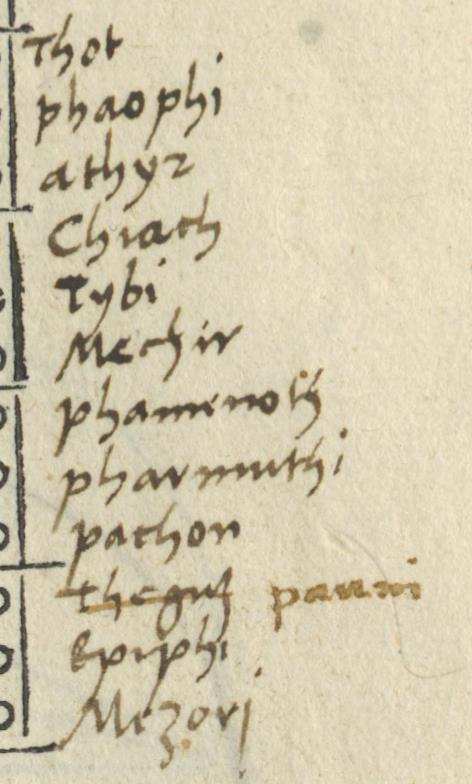 Thot
phaophi
athyr
Chiach
Tybi
Mechir
phamenoth
pharmuthi
pachon
pauni
Epiphi
Mezori